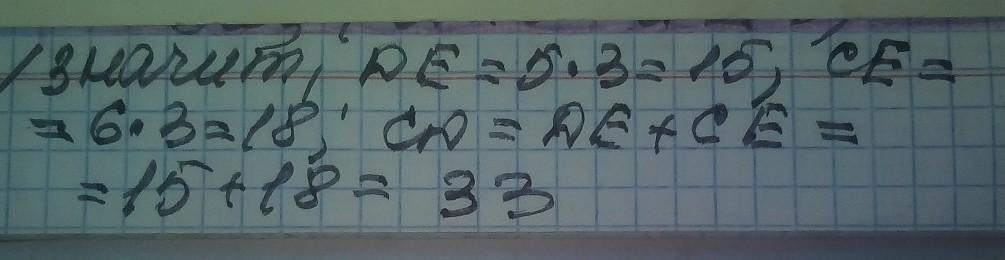 значит, DE = 5·3 = 15, CE =
= 6·3 = 18; CD = DE + CE =
= 15 + 18 = 33